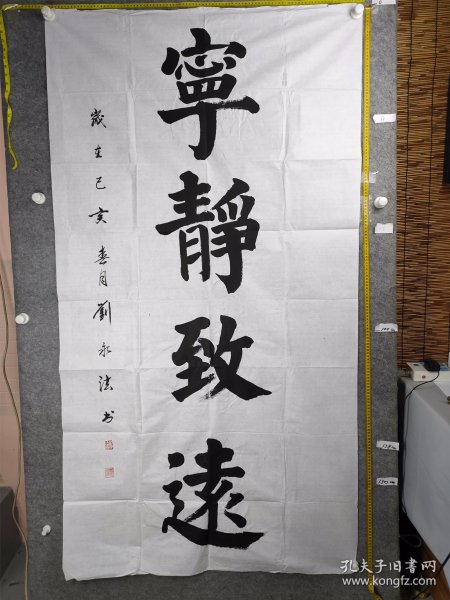 寧靜致遠
歲在己亥春月劉永法书
孔夫子旧书网
www.kongfz.com